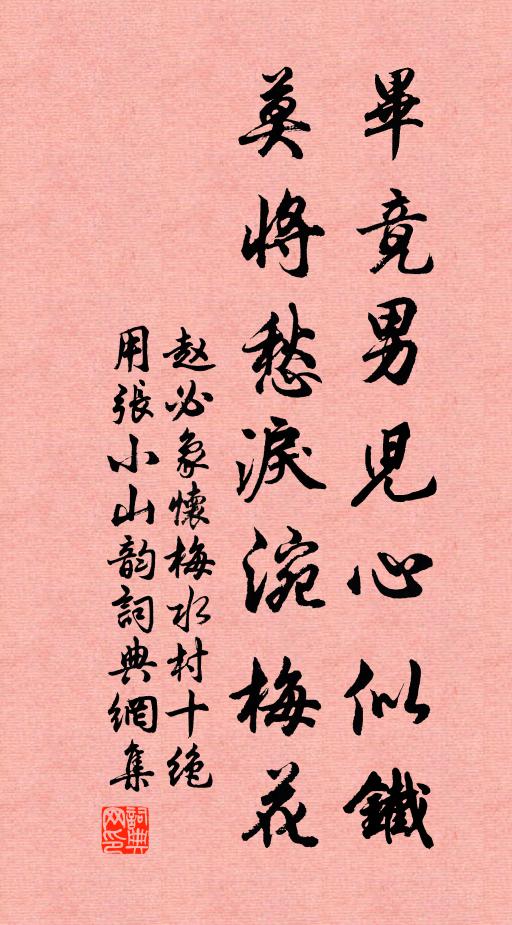 畢竟男兒心似鐵
莫將愁淚涴梅花
赵必象懷梅水村十绝
用張小山韵詞典網集
詞典
网印